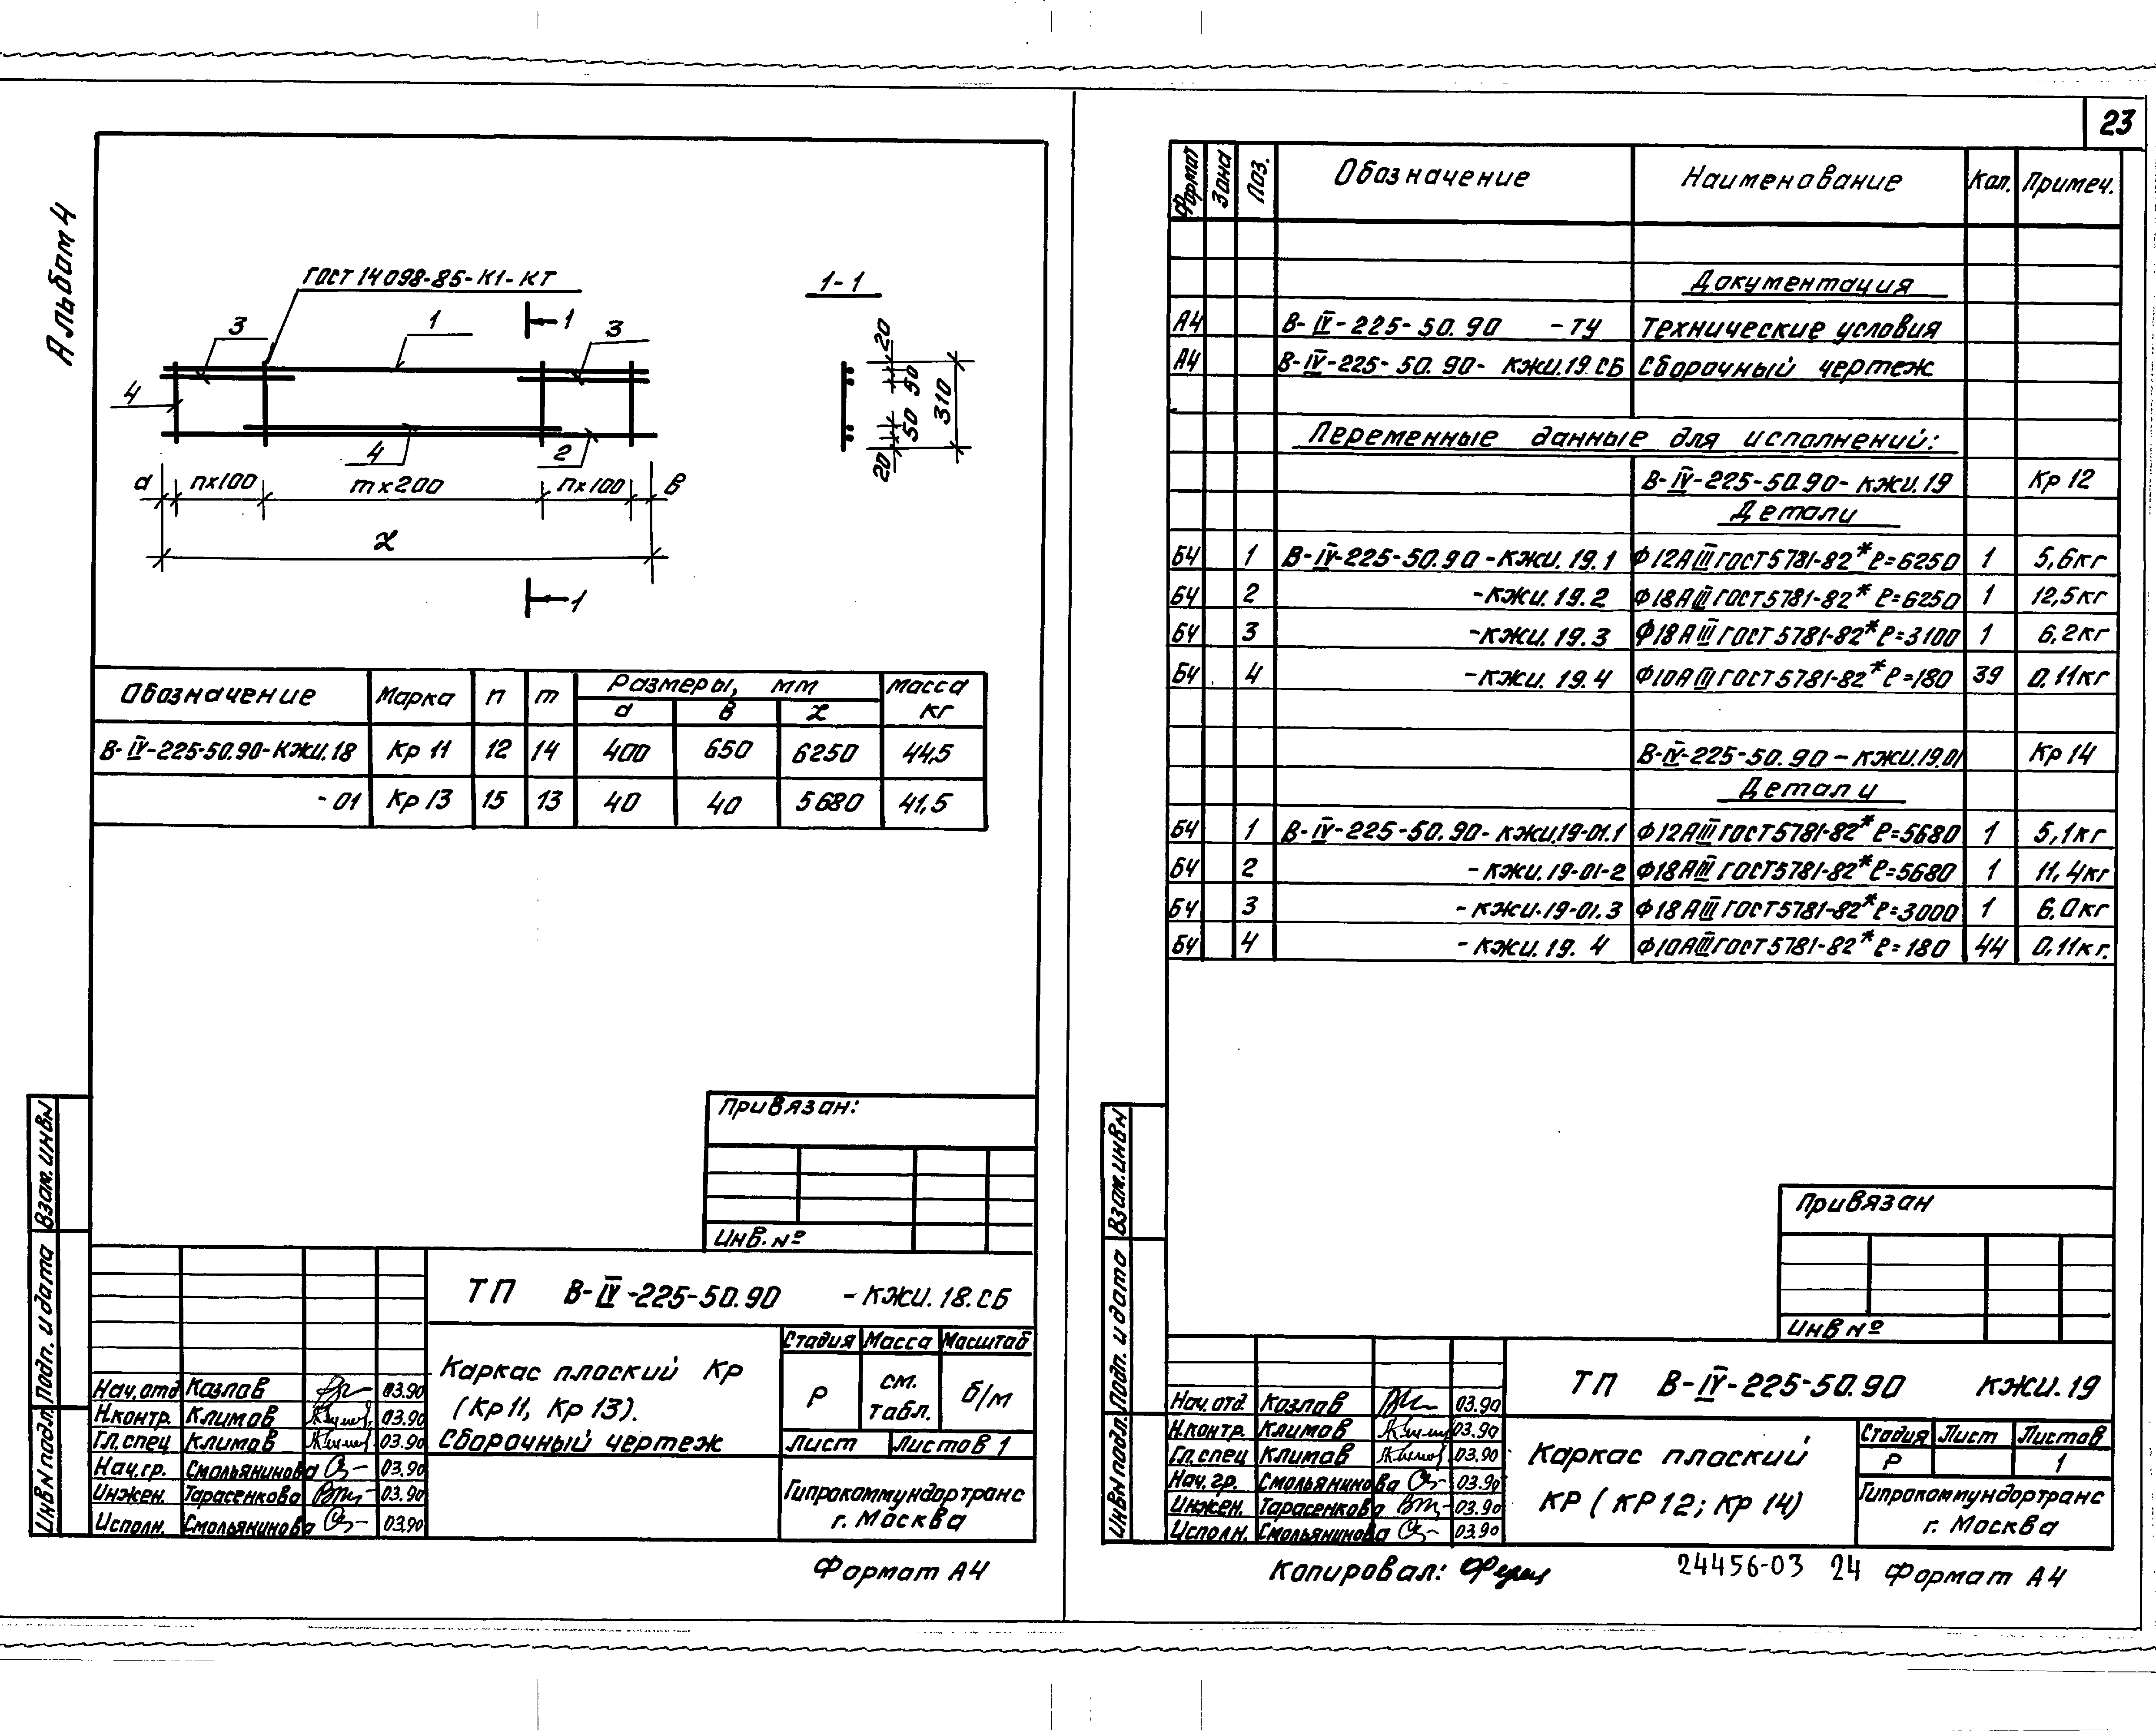 23
Альбом 4
ГОСТ 14098-85-К1-КТ
1-1
1
3
1
3
4
4
2
а
n×100
m×200
n×100
в
L
1
20
50
310
50
20
Обозначение Марка n m Размеры, мм Масса кг
а в L
В-IV-225-50.90-КЖИ.18 Кр 11 12 14 400 650 6250 44,5
-01 Кр 13 15 13 40 40 5680 41,5
Привязан:
Инв. №
ТП В-IV-225-50.90 -КЖИ.18.СБ
Каркас плоский Кр
(Кр 11, Кр 13).
Сборочный чертеж
Стадия Масса Масштаб
Р см. табл. б/м
Лист Листов 1
Гипрокоммундортранс
г. Москва
Нач.отд Козлов 03.90
Н.контр. Климов 03.90
Гл.спец Климов 03.90
Нач.гр. Смольянинова 03.90
Инжен. Тарасенкова 03.90
Исполн. Смольянинова 03.90
Взам. инв N
Подп. и дата
Инв N подл.
Формат А4
Формат Зона Поз. Обозначение Наименование Кол. Примеч.
Документация
А4 В-IV-225-50.90 -ТУ Технические условия
А4 В-IV-225-50.90- КЖИ.19.СБ Сборочный чертеж
Переменные данные для исполнений:
В-IV-225-50.90- КЖИ.19 Кр 12
Детали
БЧ 1 В-IV-225-50.90-КЖИ.19.1 Ф12АIII ГОСТ 5781-82* ℓ=6250 1 5,6кг
БЧ 2 -КЖИ.19.2 Ф18АIII ГОСТ 5781-82* ℓ=6250 1 12,5кг
БЧ 3 -КЖИ.19.3 Ф18АIII ГОСТ 5781-82* ℓ=3100 1 6,2кг
БЧ 4 -КЖИ.19.4 Ф10АIII ГОСТ 5781-82* ℓ=180 39 0,11кг
В-IV-225-50.90-КЖИ.19.01 Кр 14
Детали
БЧ 1 В-IV-225-50.90-КЖИ.19-01.1 Ф12АIII ГОСТ 5781-82* ℓ=5680 1 5,1кг
БЧ 2 -КЖИ.19-01-2 Ф18АIII ГОСТ 5781-82* ℓ=5680 1 11,4кг
БЧ 3 -КЖИ.19-01.3 Ф18АIII ГОСТ 5781-82* ℓ=3000 1 6,0кг
БЧ 4 -КЖИ.19.4 Ф10АIII ГОСТ 5781-82* ℓ=180 44 0,11кг.
Привязан
Инв №
ТП В-IV-225-50.90 КЖИ.19
Каркас плоский
КР (КР12; Кр 14)
Стадия Лист Листов
Р 1
Гипрокоммундортранс
г. Москва
Нач.отд. Козлов 03.90
Н.контр. Климов 03.90
Гл.спец Климов 03.90
Нач.гр. Смольянинова 03.90
Инжен. Тарасенкова 03.90
Исполн. Смольянинова 03.90
Взам. инв N
Подп. и дата
Инв N подл.
Копировал:
24456-03 24 Формат А4